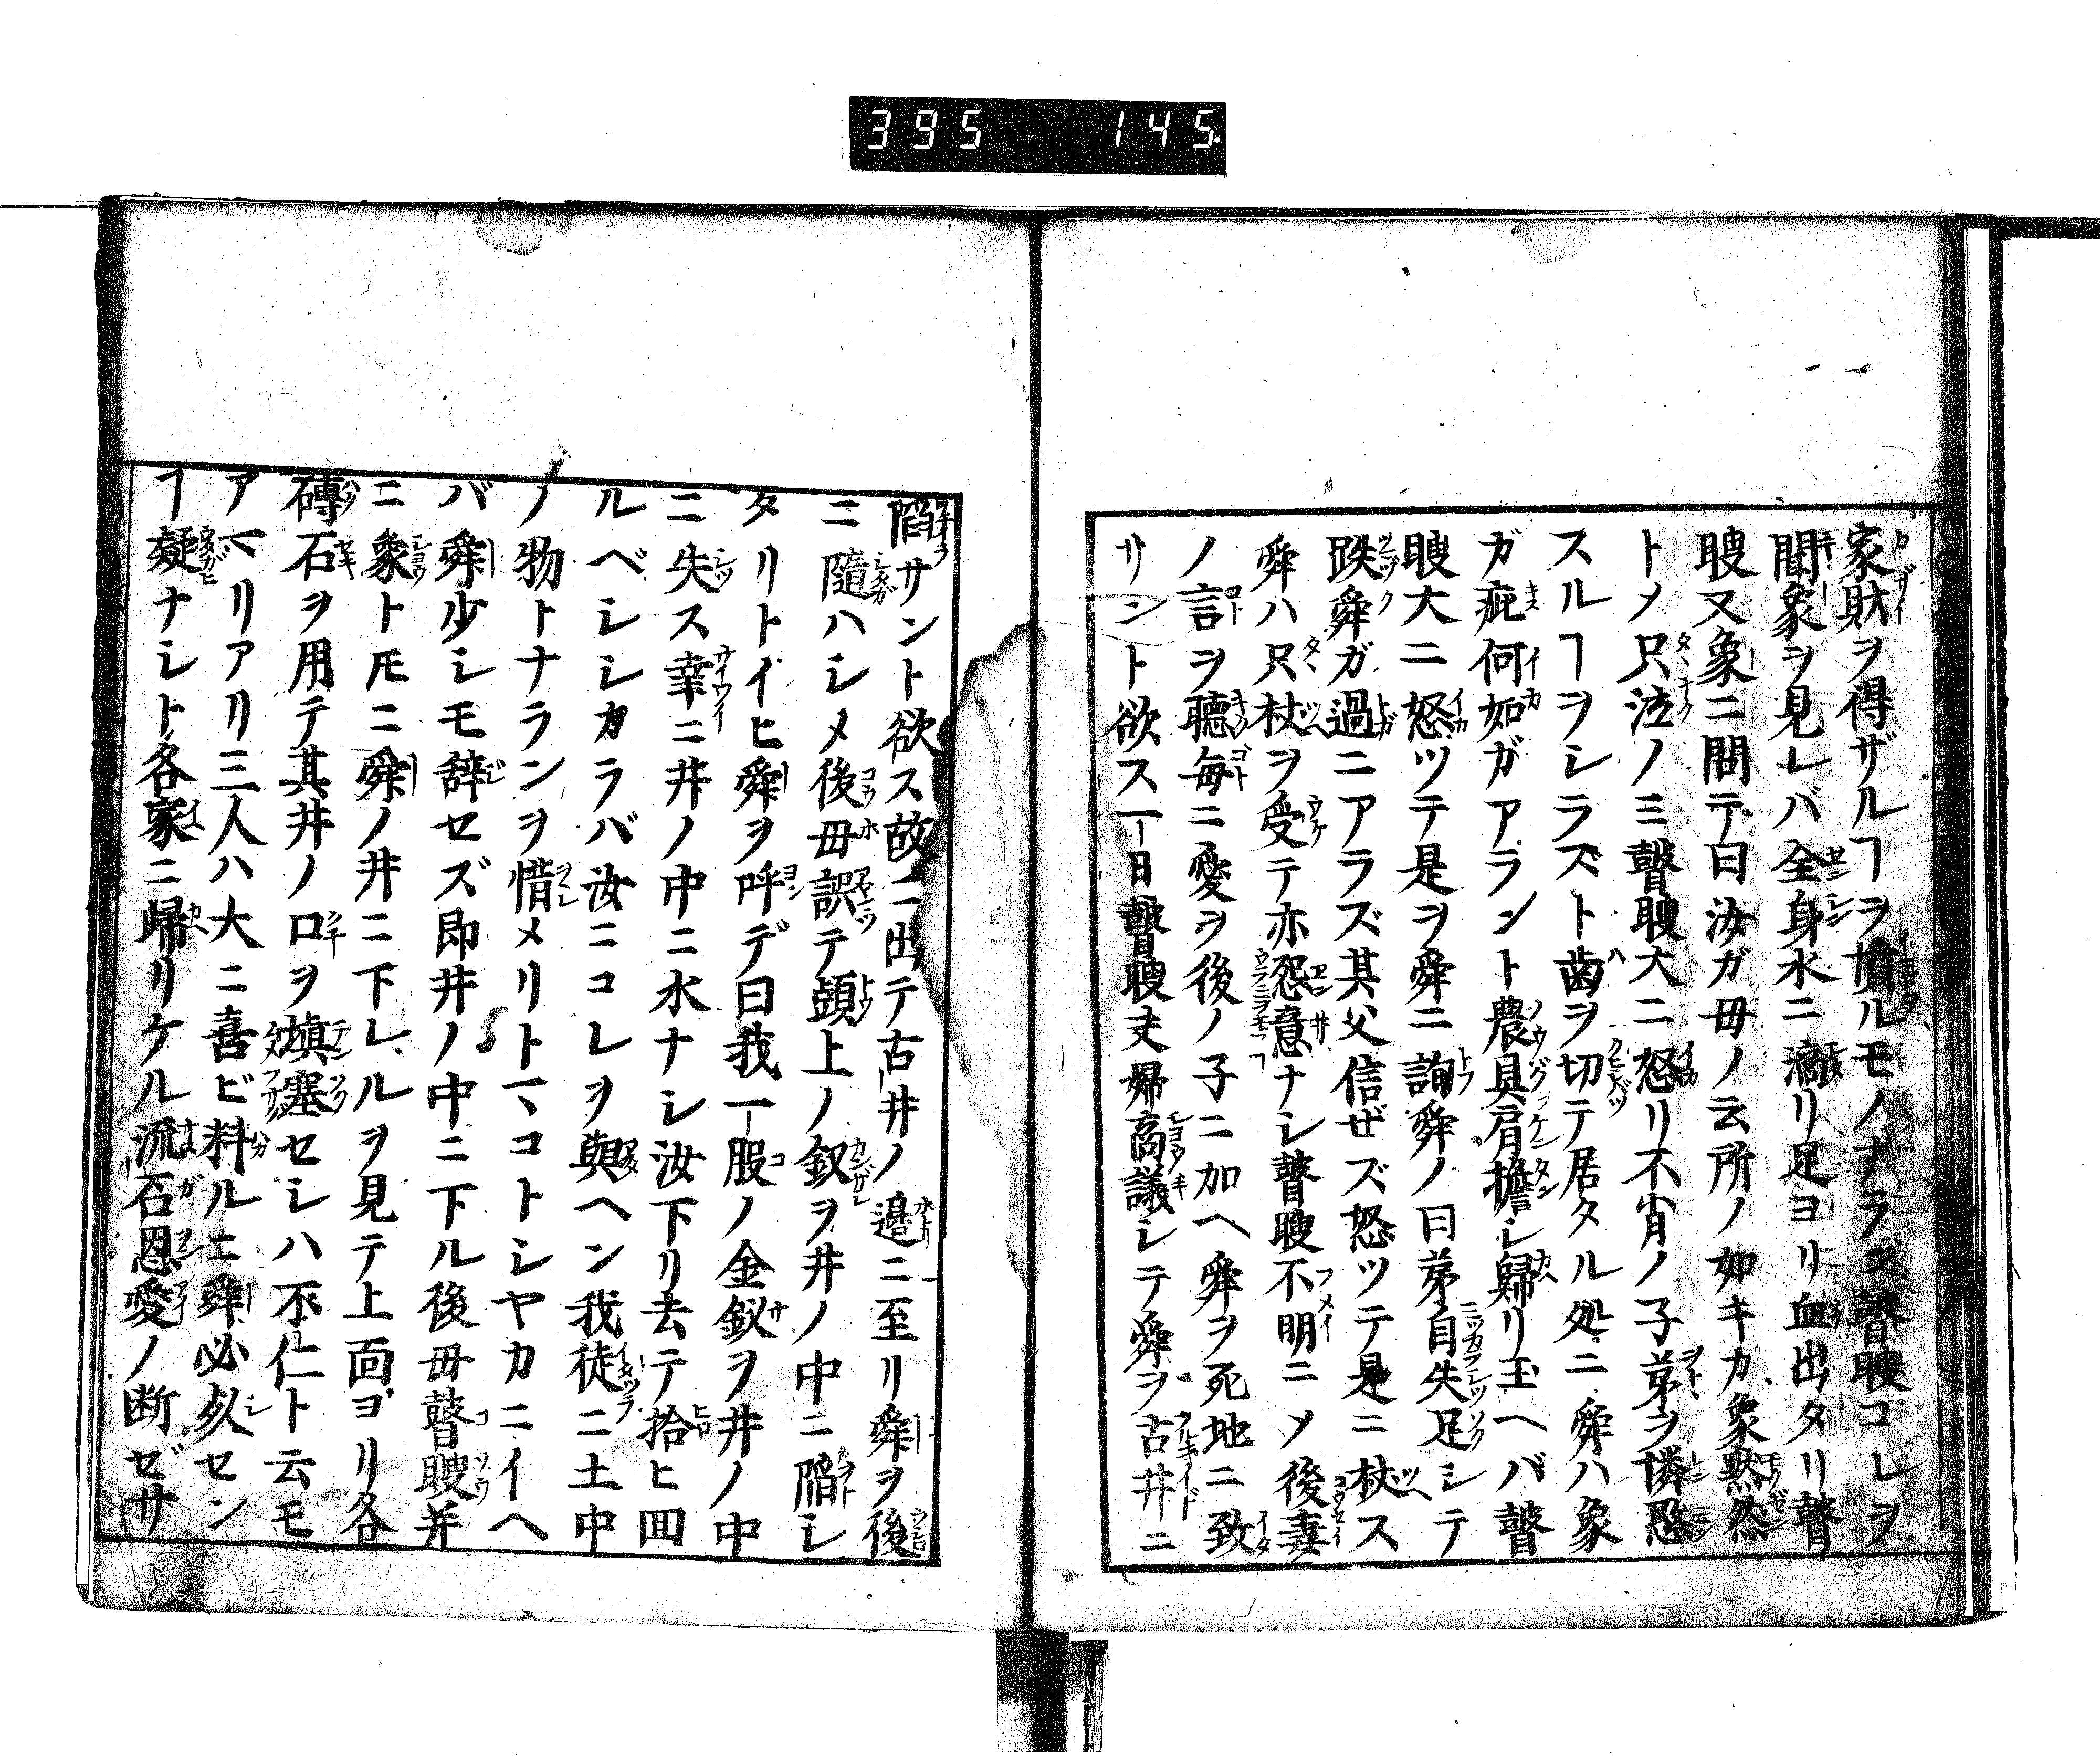 395 145
家財ヲ得ザルヿヲ憤ルモノナラン瞽瞍コレヲ
聞象ヲ見レバ全身水ニ滴リ足ヨリ血出タリ瞽
瞍又象ニ問テ曰汝ガ母ノ云所ノ如キカ象黙然
トメ只泣ノミ瞽瞍大ニ怒リ不肖ノ子弟ヲ憐愍
スルヿヲシラズト歯ヲ切テ居タル処ニ舜ハ象
ガ疵何如ガアラント農具肩擔シ歸リ玉ヘバ瞽
瞍大ニ怒ツテ是ヲ舜ニ詢舜ノ曰弟自失足シテ
跌舜ガ過ニアラズ其父信ゼズ怒ツテ是ニ杖ス
舜ハ只杖ヲ受テ亦怨意ナシ瞽瞍不明ニメ後妻
ノ言ヲ聴毎ニ愛ヲ後ノ子ニ加ヘ舜ヲ死地ニ致
サント欲ス一日瞽瞍夫婦商議シテ舜ヲ古井ニ
陷サント欲ス故ニ出テ古井ノ邉ニ至リ舜ヲ後
ニ隨ハシメ後毋誤テ頭上ノ釵ヲ井ノ中ニ陷シ
タリトイヒ舜ヲ呼デ曰我一股ノ金釵ヲ井ノ中
ニ失ス幸ニ井ノ中ニ水ナシ汝下リ去テ拾ヒ回
ルベシシカラバ汝ニコレヲ與ヘン我徒ニ土中
ノ物トナランヲ惜メリトマコトシヤカニイヘ
バ舜少シモ辞セズ即井ノ中ニ下ル後毋瞽瞍并
ニ象トモニ舜ノ井ニ下レルヲ見テ上面ヨリ各
磚石ヲ用テ其井ノ口ヲ塡塞セシハ不仁ト云モ
アマリアリ三人ハ大ニ喜ビ料ルニ舜必死セン
ヿ疑ナシト各家ニ帰リケル流石恩愛ノ断ゼサ